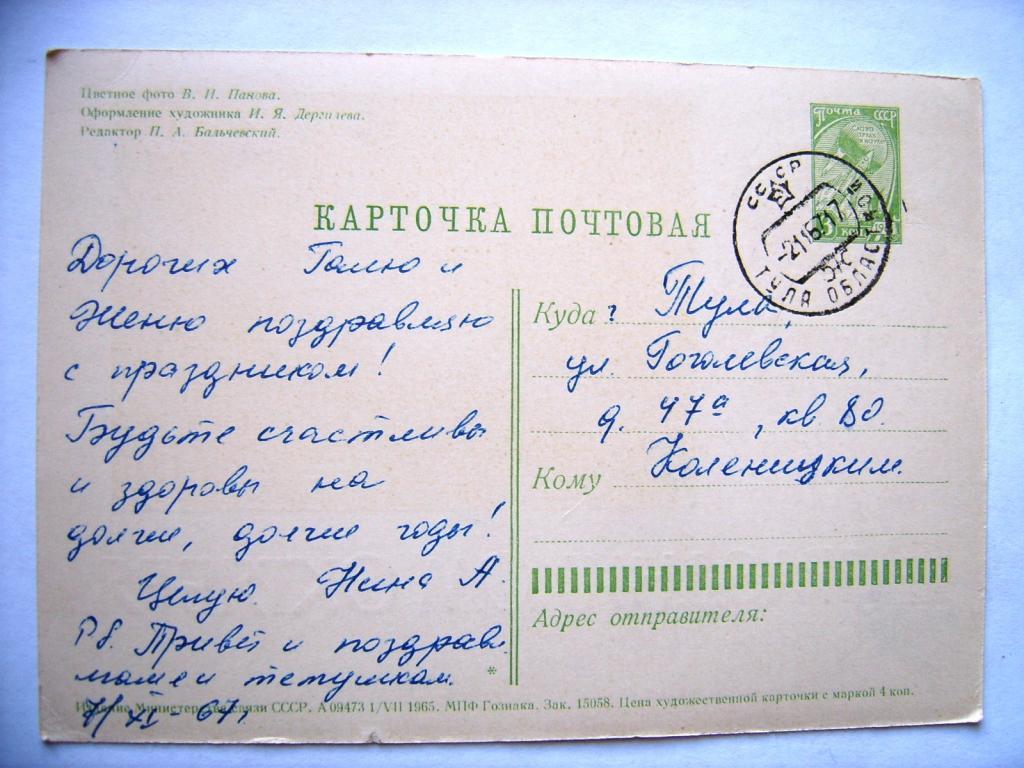 Цветное фото В. И. Панова.
Оформление художника И. Я. Дергилева.
Редактор П. А. Бальчевский.
почта СССР
СССР
ТУЛА ОБЛАСТНОЙ
КАРТОЧКА ПОЧТОВАЯ
Дорогих Галю и
Женю поздравляю
с праздником!
Будьте счастливы
и здоровы на
долгие, долгие годы!
Целую Нина А.
PS. Привет и поздравл.
маме и тетушкам.
XI-67г
Куда Тула,
ул Гоголевская,
д. 47а, кв 80.
Кому Коленицким.
Адрес отправителя:
*
Издание Министерства связи СССР. А 09473 1/VII 1965. МПФ Гознака. Зак. 15058. Цена художественной карточки с маркой 4 коп.